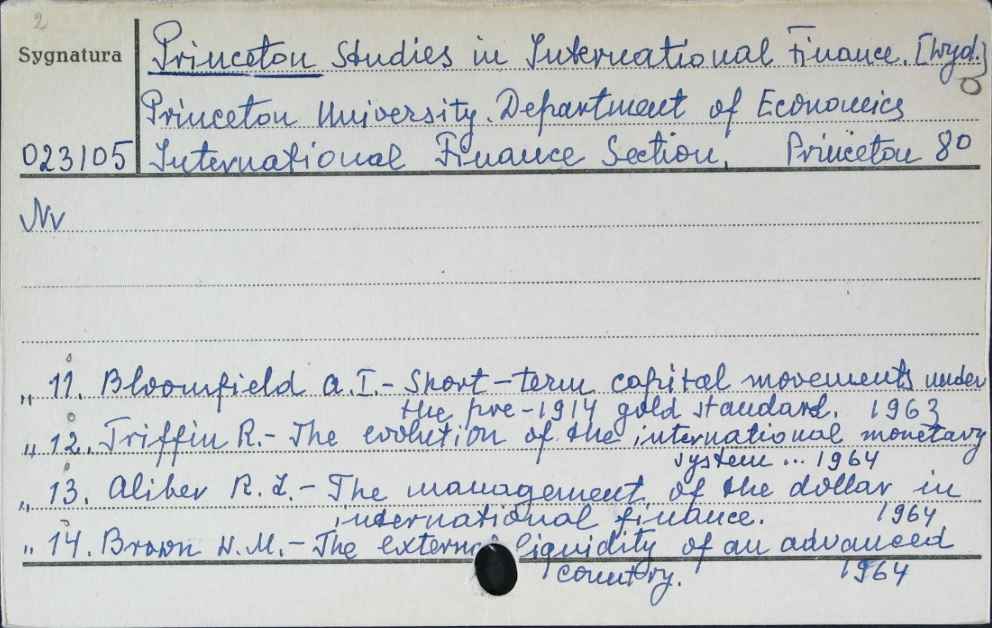 2
Sygnatura
Princeton Studies in International Finance. [Wyd.]
Princeton University. Department of Economics
023105 International Finance Section. Princeton 8°
Nr
„ 11. Bloomfield A.I. - Short-term capital movements under
the pre-1914 gold standard. 1963
„ 12. Triffin R. - The evolution of the international monetary
system ... 1964
„ 13. Aliber R.Z. - The management of the dollar in
international finance. 1964
„ 14. Brown W.M. - The external liquidity of an advanced
country. 1964